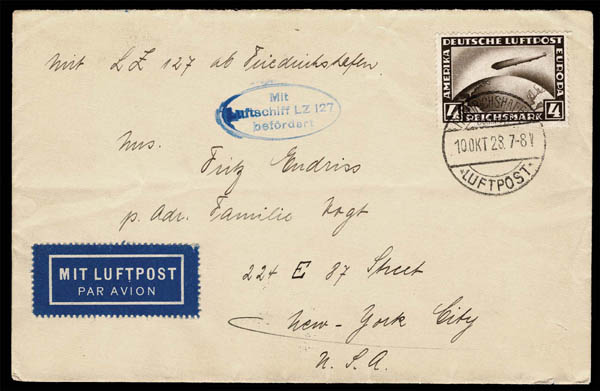 mit LZ 127 ab Friedrichshafen.
Mit
Luftschiff LZ 127
befördert
DEUTSCHE LUFTPOST
AMERIKA
EUROPA
4 REICHSMARK 4
10 OKT 28. 7-8
LUFTPOST
Fritz Endriss
p. Adr. Familie Vogt
224 E 87 Street
New-York City
U.S.A.
MIT LUFTPOST
PAR AVION